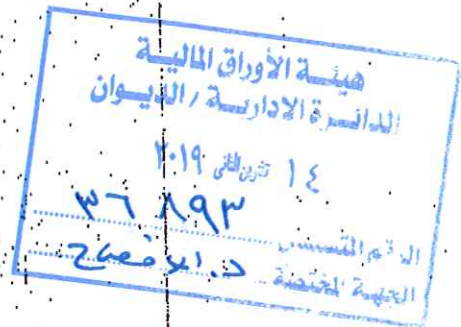 هيئة الأوراق المالية
الدائرة الإدارية / الديوان
١٤ تشرين الثاني ٢٠١٩
الرقم المتسلسل ٣٦٨٩٣
الجهة المختصة د. الافصاح